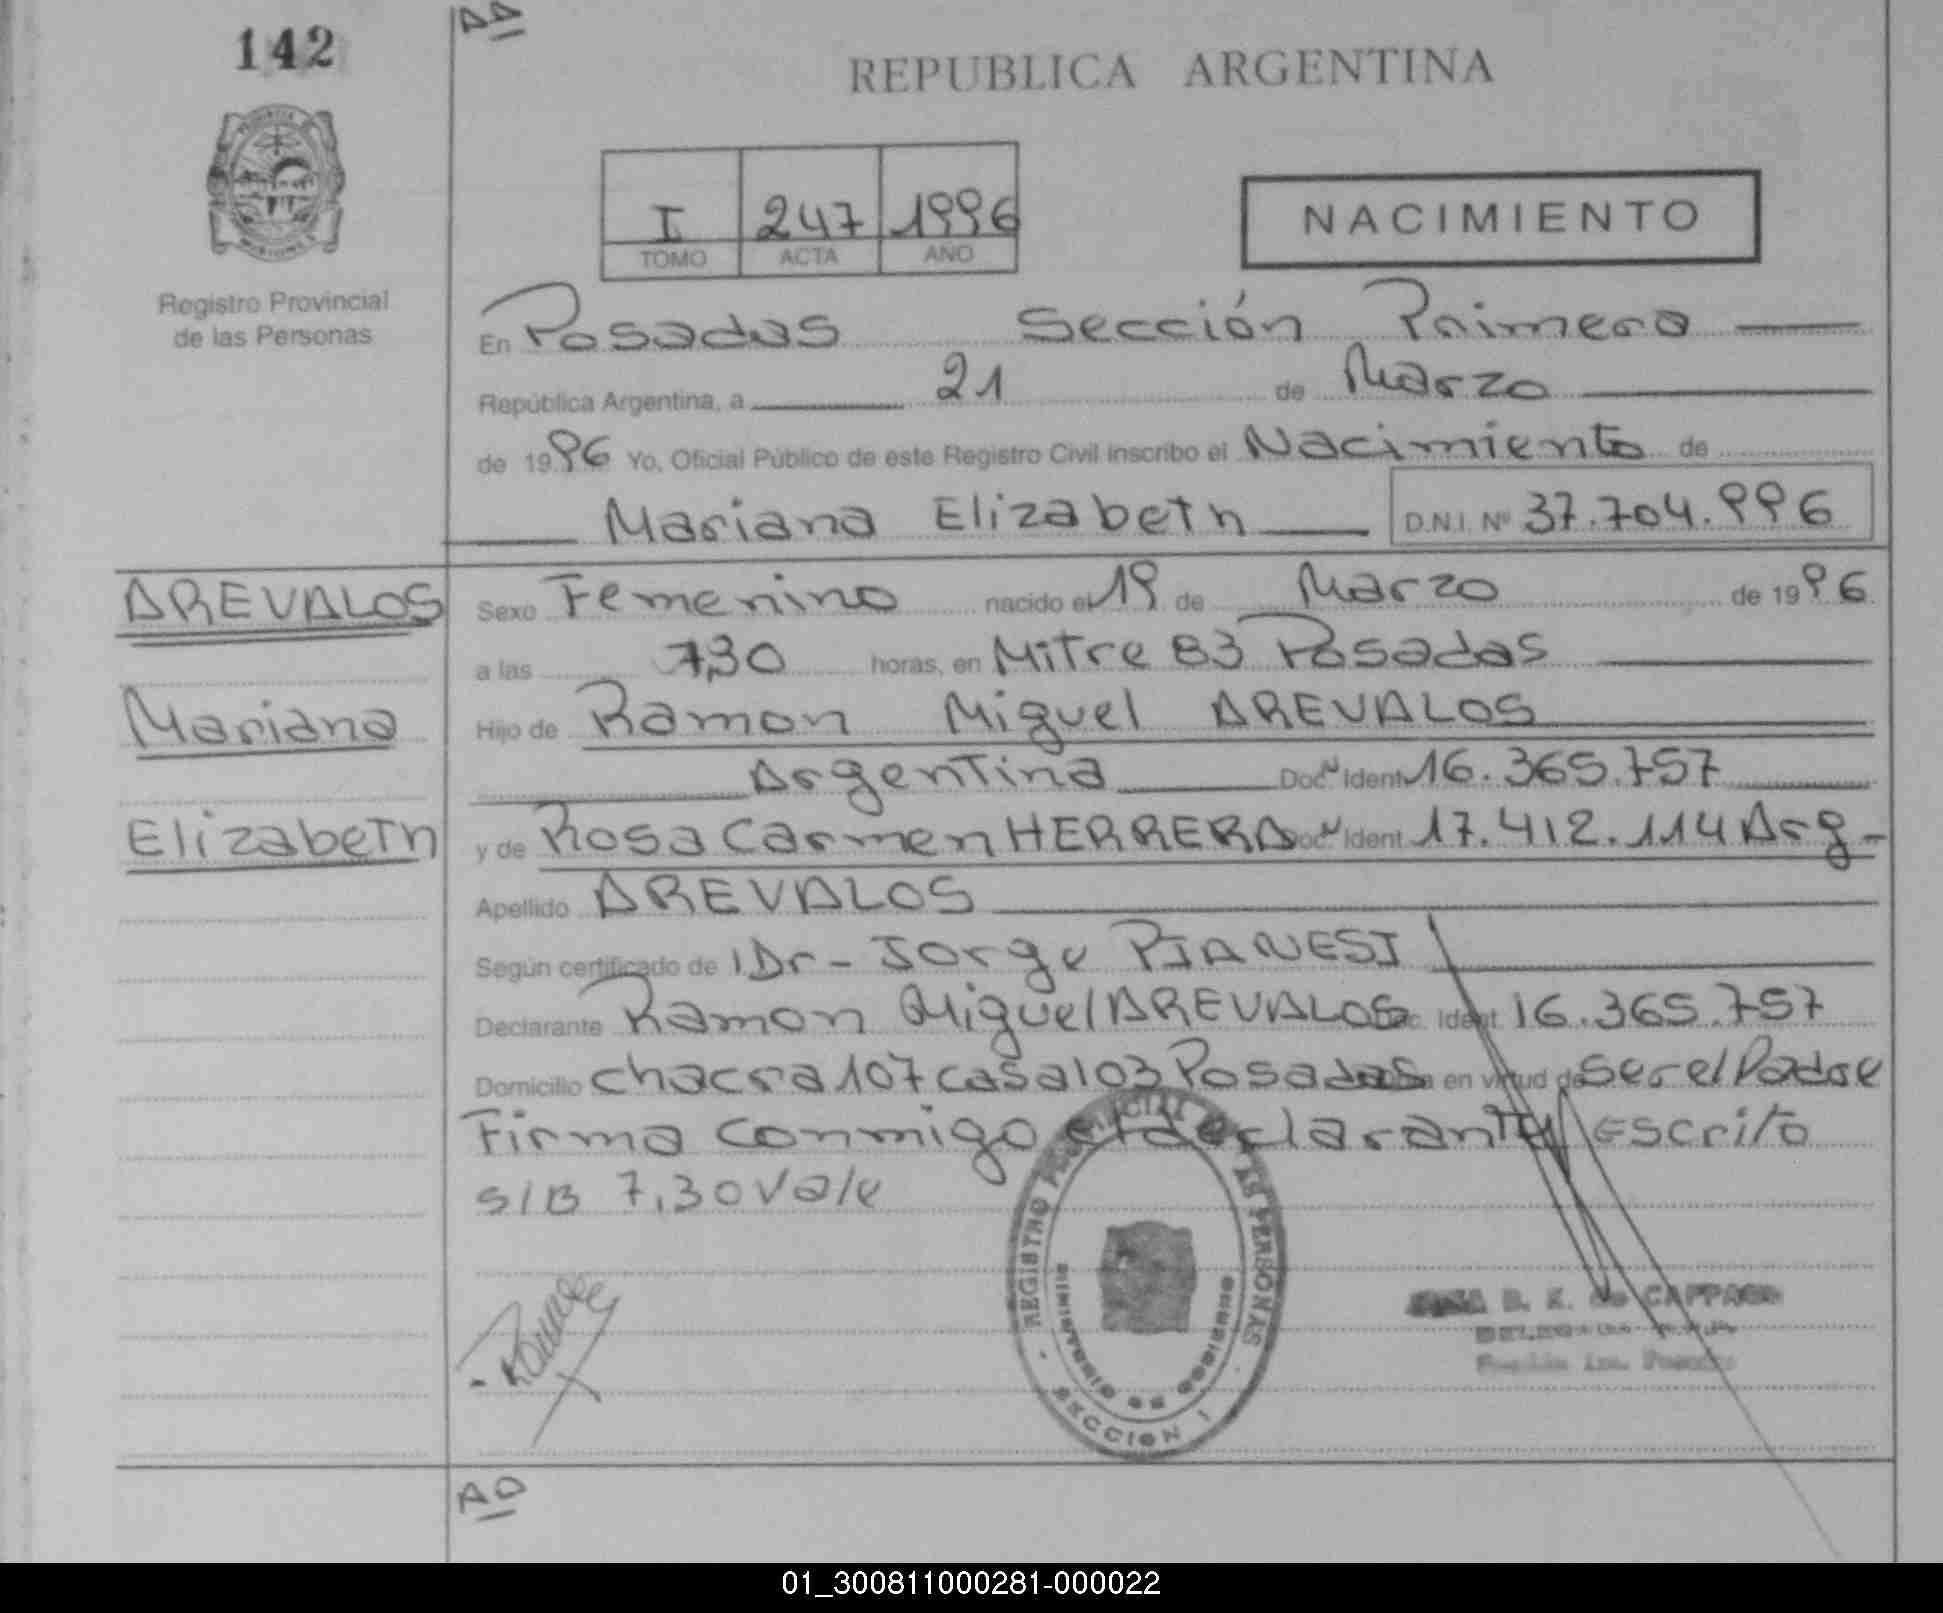 142
REPUBLICA ARGENTINA
I 247 1996
TOMO ACTA AÑO
NACIMIENTO
Registro Provincial
de las Personas
En Posadas Sección Primera
República Argentina, a 21 de Marzo
de 1996 Yo, Oficial Público de este Registro Civil inscribo el Nacimiento de
Mariana Elizabeth D.N.I. Nº 37.704.996
AREVALOS
Mariana
Elizabeth
Sexo Femenino nacido el 19 de Marzo de 1996
a las 7,30 horas, en Mitre 83 Posadas
Hijo de Ramon Miguel AREVALOS
Argentina Doc. Ident. 16.365.757
y de Rosa Carmen HERRERA Doc. Ident. 17.412.114 Arg-
Apellido AREVALOS
Según certificado de Dr- Jorge PIANESI
Declarante Ramon Miguel AREVALOS Doc. Ident. 16.365.757
Domicilio chacra 107 casa 103 Posadas en virtud de ser el Padre
Firma conmigo el declarante escrito
S/B 7,30 Vale
REGISTRO PROVINCIAL DE LAS PERSONAS
MINISTERIO DE GOBIERNO
SECCION I
01_300811000281-000022